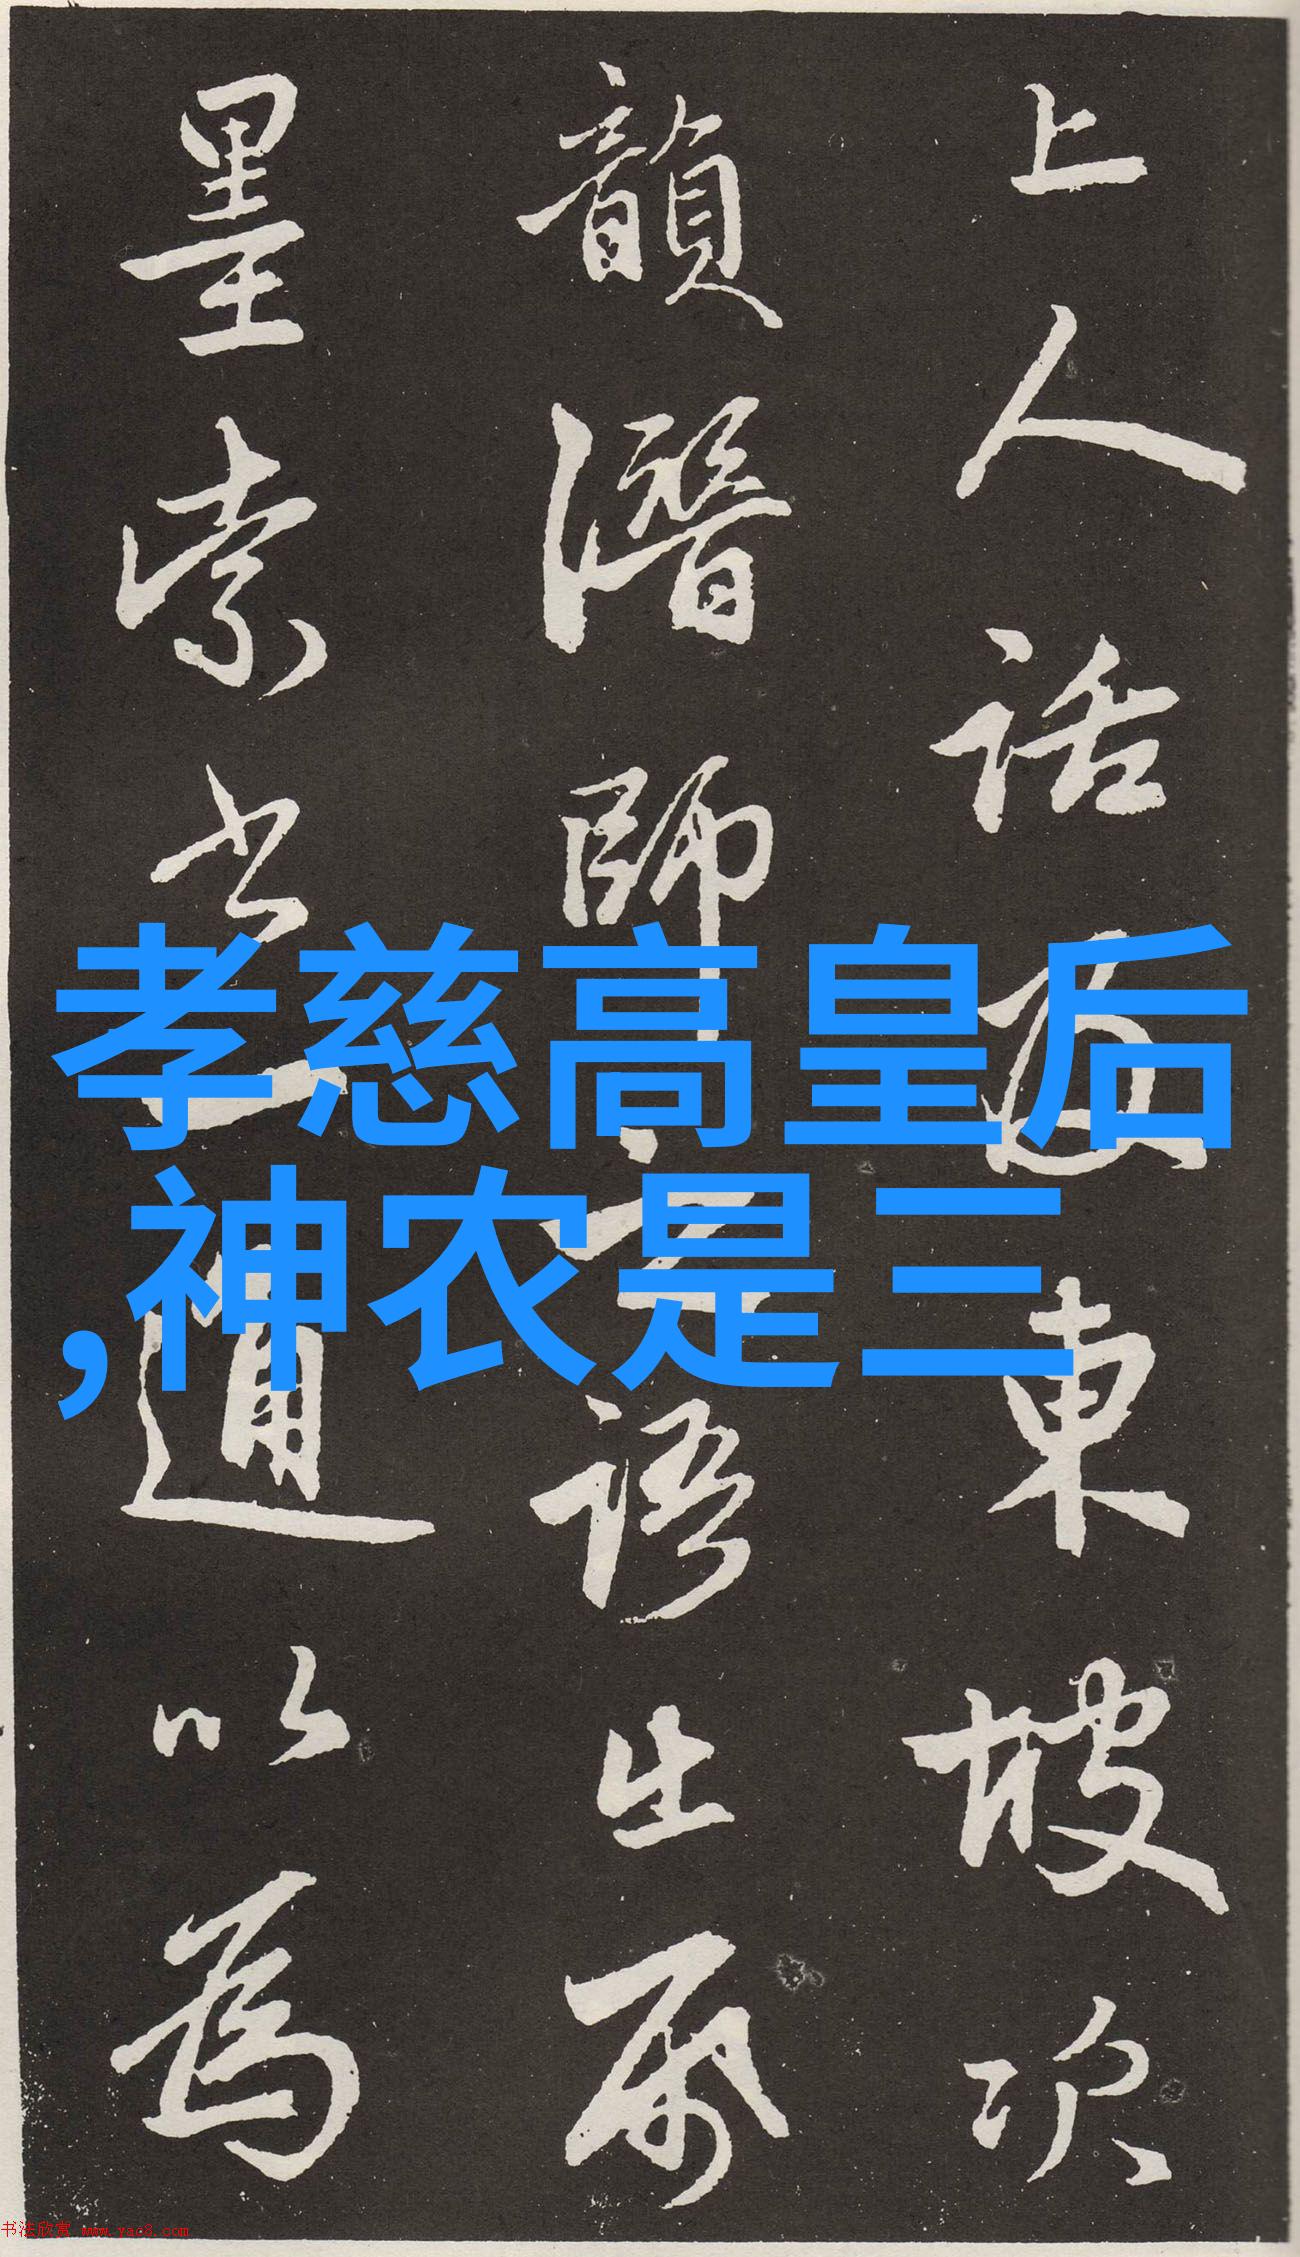 上人話遊東坡次
韻潛師
語生
墨索書
以為
孝慈高皇后
,神农是三
书法欣赏 www.yac8.com